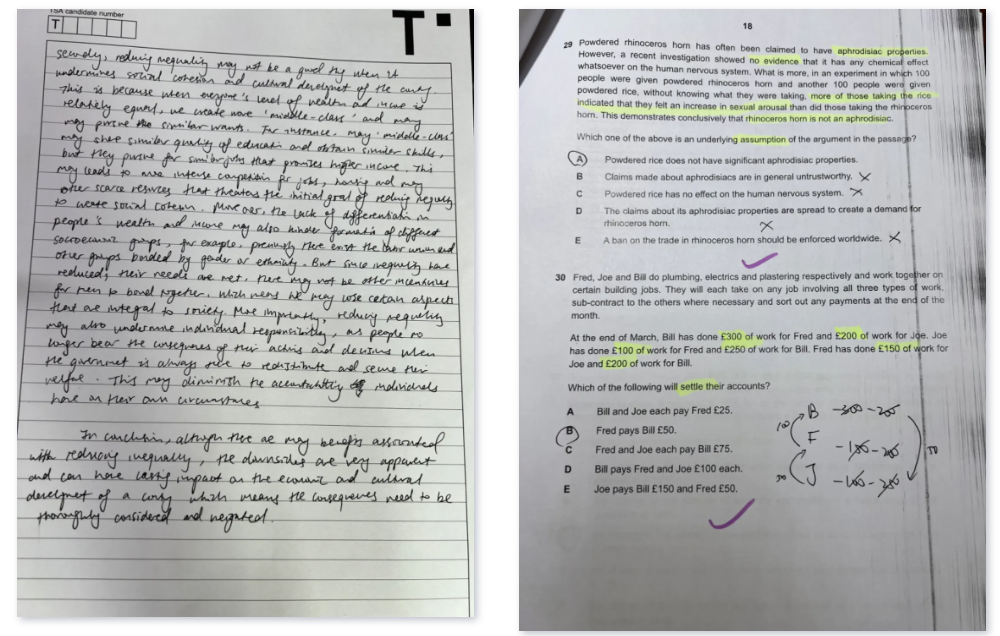 TSA candidate number
T
T
secondly, reducing inequality may not be a good thing when it
undermines social cohesion and cultural development of the country.
This is because when everyone's level of wealth and income is
relatively equal, we create more 'middle-class' and may
may pursue the similar wants. For instance, many 'middle-class'
may share similar quality of education and obtain similar skills,
but they pursue for similar jobs that promises higher income. This
may leads to more intense competition for jobs, housing and many
other scarce resources that threatens the initial goal of reducing inequality
to create social cohesion. Moreover, the lack of differentiation in
people's wealth and income may also hinder formation of different
socioeconomic groups, for example, previously there exist the labor union and
other groups bonded by gender or ethnicity. But since inequality have
reduced, their needs are met, there may not be other incentives
for them to bond together, which means we may lose certain aspects
that are integral to society. More importantly, reducing inequality
may also undermine individual responsibility, as people no
longer bear the consequences of their actions and decisions when
the government is always there to redistribute and secure their
welfare. This may diminish the accountability of individuals
have on their own circumstances
In conclusion, although there are many benefits associated
with reducing inequality, the downsides are very apparent
and can have lasting impact on the economic and cultural
development of a country which means the consequences need to be
thoroughly considered and negated.
18
29 Powdered rhinoceros horn has often been claimed to have aphrodisiac properties.
However, a recent investigation showed no evidence that it has any chemical effect
whatsoever on the human nervous system. What is more, in an experiment in which 100
people were given powdered rhinoceros horn and another 100 people were given
powdered rice, without knowing what they were taking, more of those taking the rice
indicated that they felt an increase in sexual arousal than did those taking the rhinoceros
horn. This demonstrates conclusively that rhinoceros horn is not an aphrodisiac.
Which one of the above is an underlying assumption of the argument in the passage?
A Powdered rice does not have significant aphrodisiac properties.
B Claims made about aphrodisiacs are in general untrustworthy.
C Powdered rice has no effect on the human nervous system.
D The claims about its aphrodisiac properties are spread to create a demand for
rhinoceros horn.
E A ban on the trade in rhinoceros horn should be enforced worldwide.
30 Fred, Joe and Bill do plumbing, electrics and plastering respectively and work together on
certain building jobs. They will each take on any job involving all three types of work,
sub-contract to the others where necessary and sort out any payments at the end of the
month.
At the end of March, Bill has done £300 of work for Fred and £200 of work for Joe. Joe
has done £100 of work for Fred and £250 of work for Bill. Fred has done £150 of work for
Joe and £200 of work for Bill.
Which of the following will settle their accounts?
A Bill and Joe each pay Fred £25.
B Fred pays Bill £50.
C Fred and Joe each pay Bill £75.
D Bill pays Fred and Joe £100 each.
E Joe pays Bill £150 and Fred £50.
B -300 -200
F -150 -200
J -100 -250
100
50
50